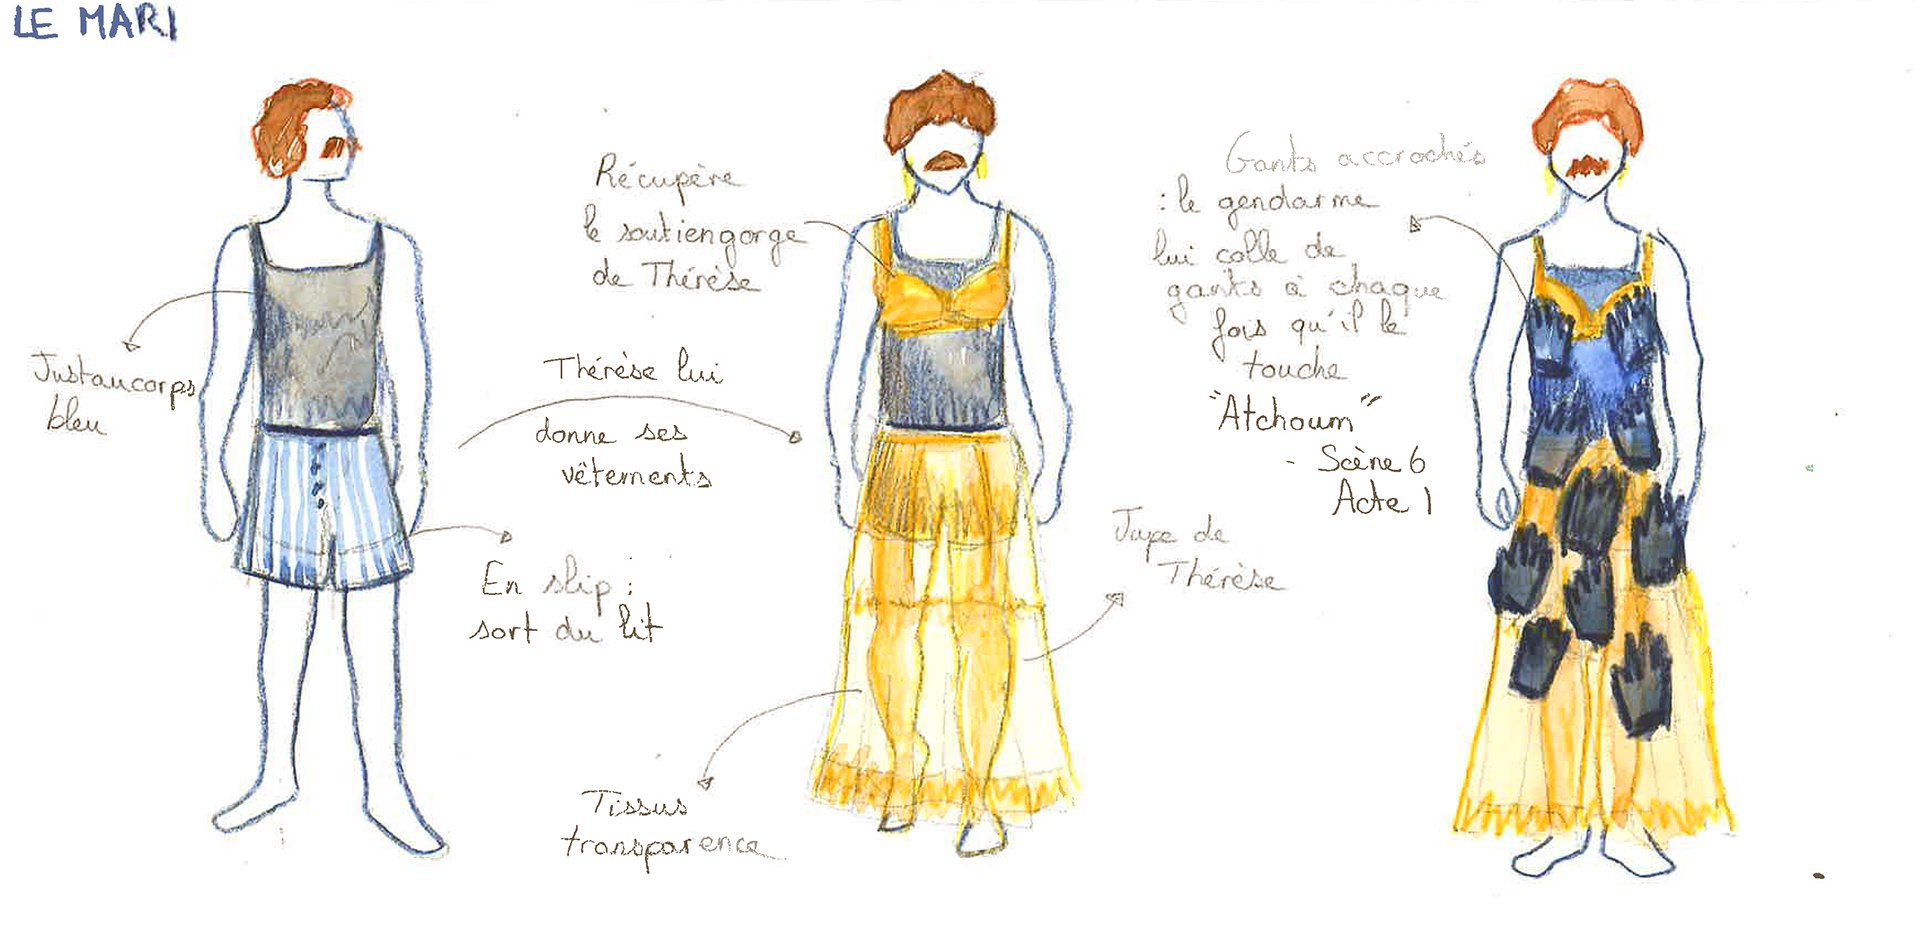 LE MARI
Justaucorps
bleu
En slip :
sort du lit
Récupère
le soutiengorge
de Thérèse
Thérèse lui
donne ses
vêtements
Tissus
transparence
Jupe de
Thérèse
Gants accrochés
: le gendarme
lui colle de
gants à chaque
fois qu'il le
touche
"Atchoum"
- Scène 6
Acte 1